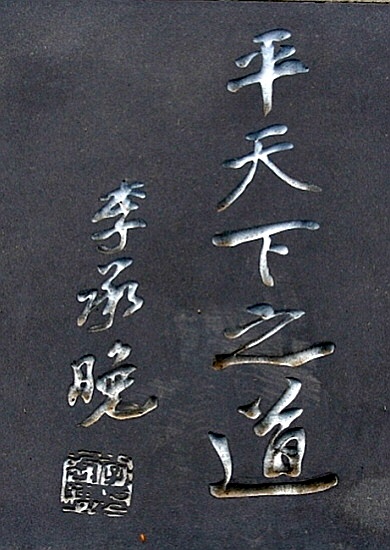 平天下之道
李承晚